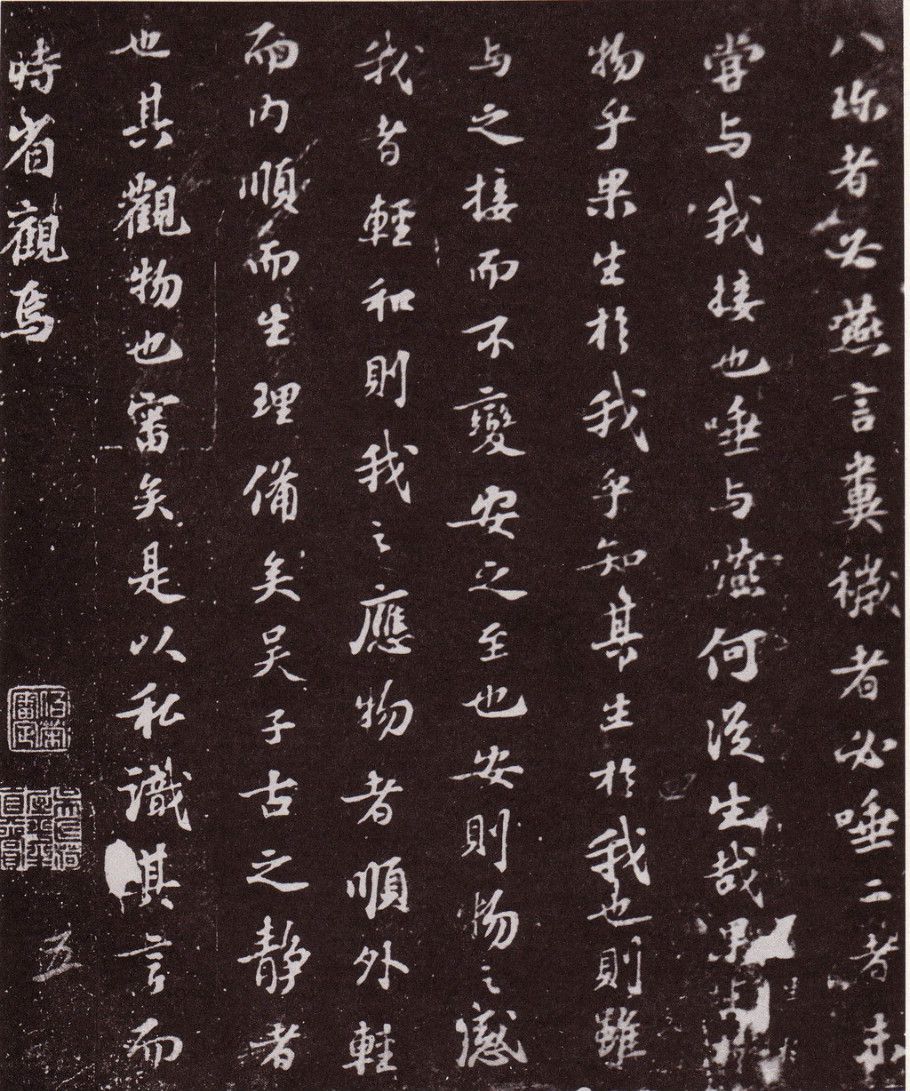 八珎者必嚥言糞穢者必唾二者未
甞与我接也唾与嚥何從生哉果生於
物乎果生於我乎知其生於我也則雖
与之接而不變安之至也安則物之感
我者輕和則我之應物者順外輕
而内順而生理備矣吴子古之靜者
也其觀物也審矣是以私識其言而
時省觀焉
五